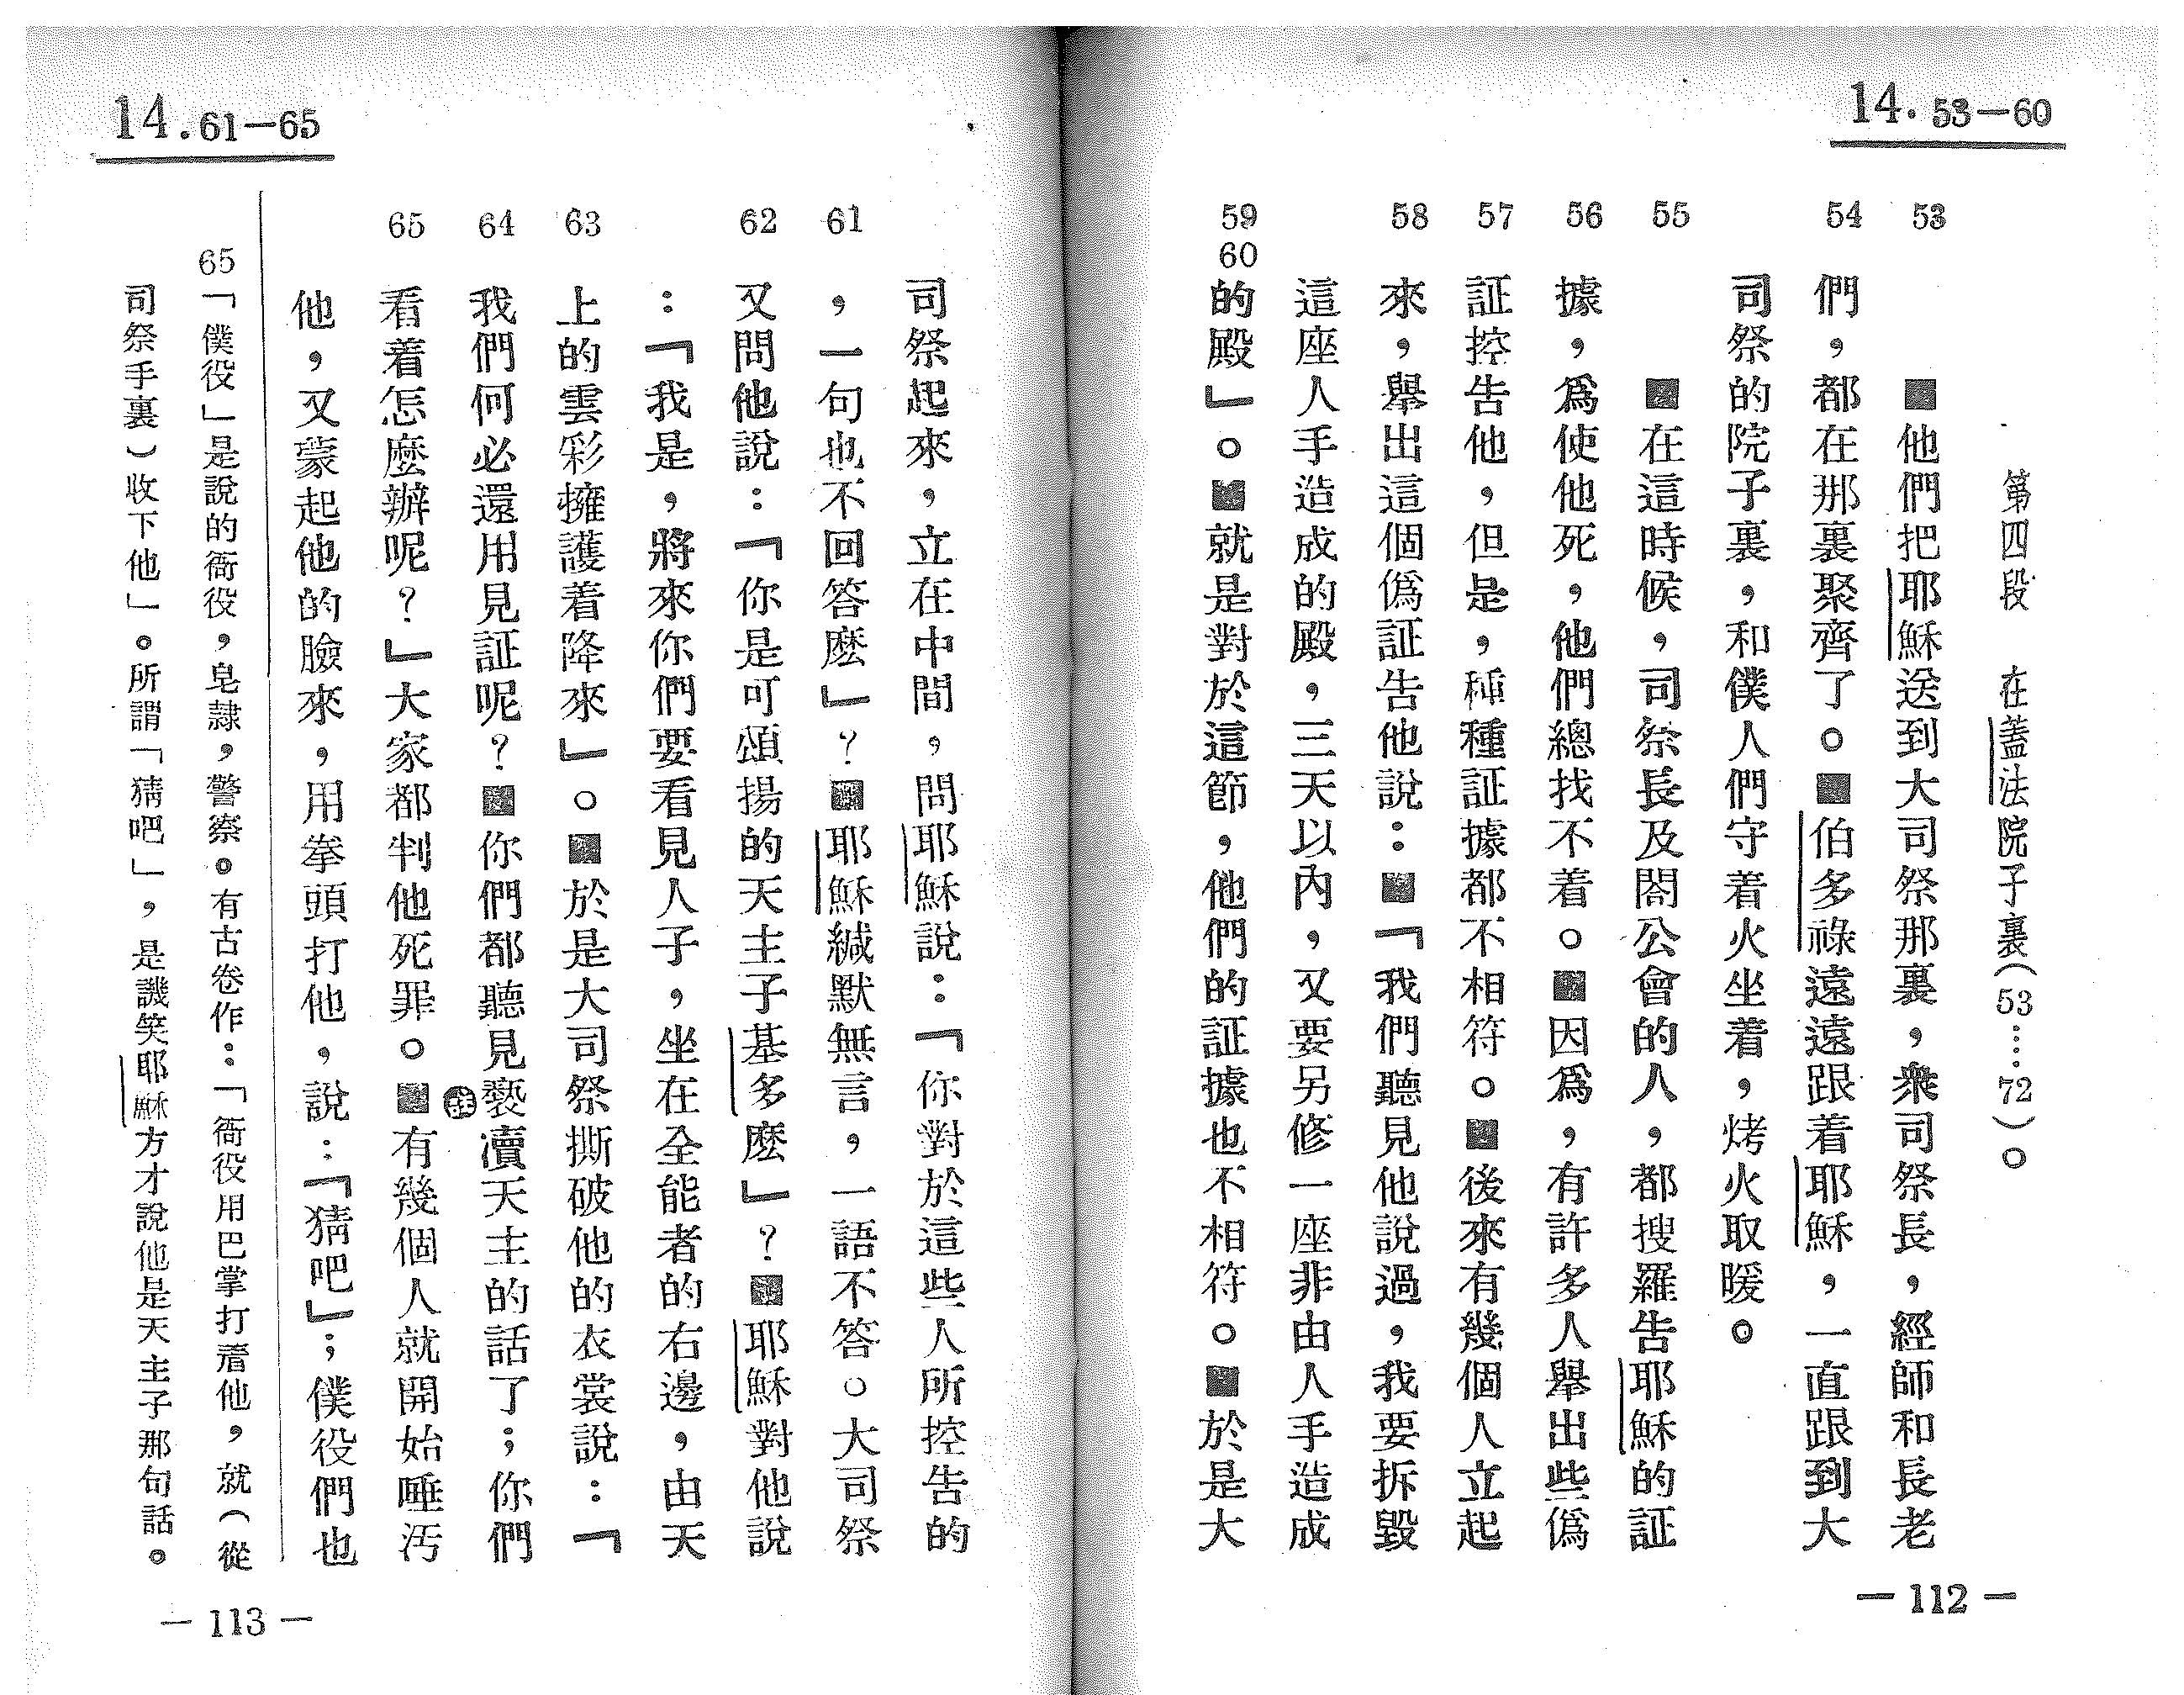 14. 53—60
第四段　在蓋法院子裏（53……72）。
53
■他們把耶穌送到大司祭那裏，衆司祭長，經師和長老
54
們，都在那裏聚齊了。■伯多祿遠遠跟着耶穌，一直跟到大
司祭的院子裏，和僕人們守着火坐着，烤火取暖。
55
■在這時候，司祭長及閤公會的人，都搜羅告耶穌的証
56
據，爲使他死，他們總找不着。■因爲，有許多人舉出些僞
57
証控告他，但是，種種証據都不相符。■後來有幾個人立起
58
來，舉出這個僞証告他說：■「我們聽見他說過，我要拆毀
這座人手造成的殿，三天以內，又要另修一座非由人手造成
59
60
的殿」。■就是對於這節，他們的証據也不相符。■於是大
— 112 —
14. 61—65
司祭起來，立在中間，問耶穌說：「你對於這些人所控告的
61
，一句也不回答麼」？■耶穌緘默無言，一語不答。大司祭
62
又問他說：「你是可頌揚的天主子基多麼」？■耶穌對他說
：「我是，將來你們要看見人子，坐在全能者的右邊，由天
63
上的雲彩擁護着降來」。■於是大司祭撕破他的衣裳說：「
64
我們何必還用見証呢？■你們都聽見褻瀆天主的話了；你們
註
65
看着怎麼辦呢？」大家都判他死罪。■有幾個人就開始唾汚
他，又蒙起他的臉來，用拳頭打他，說：「猜吧」；僕役們也
65「僕役」是說的衙役，皂隷，警察。有古卷作：「衙役用巴掌打着他，就（從
司祭手裏）收下他」。所謂「猜吧」，是譏笑耶穌方才說他是天主子那句話。
— 113 —